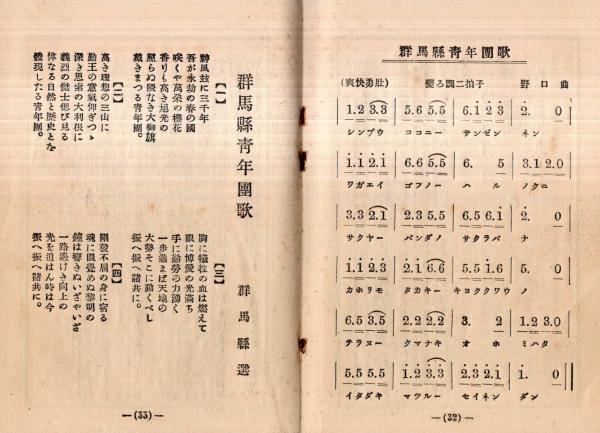 群馬縣青年團歌
(爽快勇壯) 變ろ調二拍子 野口曲
1.2 3.3 | 5.6 5.5 | 6.1 2 3 | 2. 0
シンプウ ココニー サンゼン ネン
1.1 2.1 | 6.6 5.5 | 6. 5 | 3.1 2.0
ワガエイ ゴフノー ハル ノクニ
3.3 2.1 | 2.3 5.5 | 6.5 6.1 | 2. 0
サクヤー バンダノ サクラバ ナ
1.1 2.3 | 2.1 6.6 | 5.5 1.6 | 5. 0
カホリモ タカキー キヨククワウ ノ
6.5 3.5 | 2.2 2.2 | 3. 2 | 1.2 3.0
テラヌー クマナキ オホ ミハタ
5.5 5.5 | 1.2 3.3 | 2.3 2.1 | 1. 0
イタダキ マツルー セイネン ダン
—(32)—
群馬縣青年團歌
群馬縣選
【一】
神風玆に三千年
吾が永劫の春の國
咲くや萬朶の櫻花
香りも高き旭光の
照らぬ隈なき大御旗
戴きまつる青年團。
【二】
高き理想の三山に
勤王の意氣仰ぎつゝ
深き思索の大利根に
義烈の傑士偲び見る
偉なる自然と歷史とを
體現したる青年團。
【三】
胸に犧牲の血は燃えて
眼に博愛の光滿ち
手に勤勞の力湧く
一步進まば天地の
大勢そこに動くべし
振へ振へ諸共に。
【四】
剛毅不屈の身に宿る
魂に眼覺めぬ黎明の
鐘は響きぬいざやいざ
一路遙けき向上の
光を追はん時は今
振へ振へ諸共に。
—(33)—